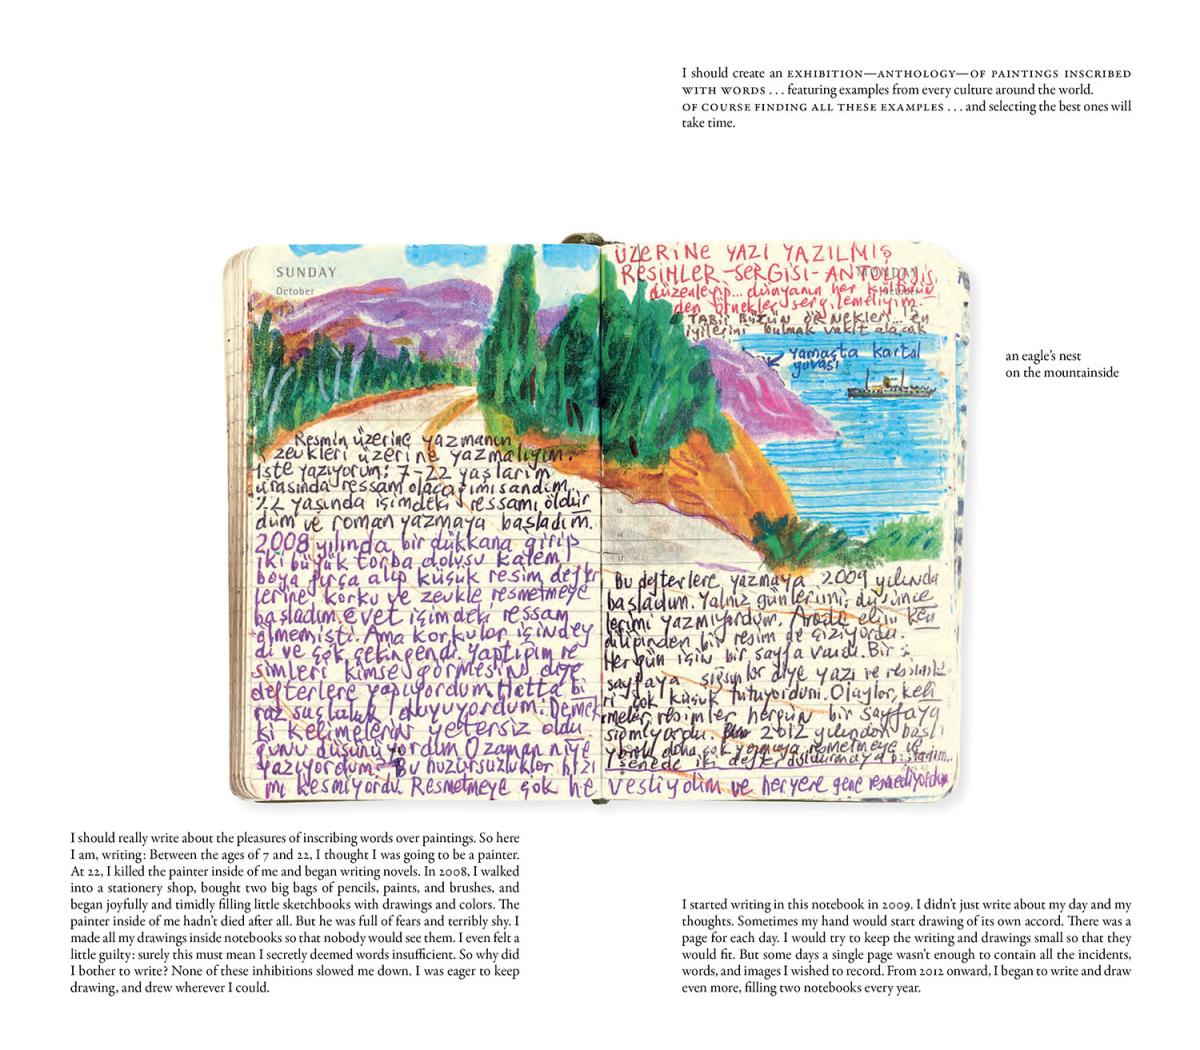 I should create an EXHIBITION—ANTHOLOGY—OF PAINTINGS INSCRIBED
WITH WORDS . . . featuring examples from every culture around the world.
OF COURSE FINDING ALL THESE EXAMPLES . . . and selecting the best ones will
take time.
SUNDAY
October
Resmin üzerine yazmanın
zevkleri üzerine yazmalıyım.
İşte yazıyorum: 7-22 yaşlarım
arasında ressam olacağımı sandım.
22 yaşında içimdeki ressamı öldür
düm ve roman yazmaya başladım.
2008 yılında bir dükkana girip
iki büyük torba dolusu kalem
boya fırça alıp küçük resim defter
lerine korku ve zevkle resmetmeye
başladım. Evet içimdeki ressam
ölmemişti. Ama korkular içindey
di ve çok çekingendi. Yaptığım re
simleri kimse görmesin diye
defterlere yapıyordum. Hatta bi
raz suçluluk duyuyordum: Demek
ki kelimelerin yetersiz oldu
ğunu düşünüyordum. O zaman niye
yazıyordum? Bu huzursuzluklar hızı
mı kesmiyordu. Resmetmeye çok he
ÜZERİNE YAZI YAZILMIŞ
RESİMLER-SERGİSİ-ANTOLOJİSİ
MONDAY
düzenleyip... dünyanın her kültürün
den örnekler sergilemeliyim.
TABİİ BÜTÜN ÖRNEKLERİ... en
iyilerini bulmak vakit alacak
yamaçta kartal
yuvası
Bu defterlere yazmaya 2009 yılında
başladım. Yalnız günlerimi, düşünce
lerimi yazmıyordum. Arada elim ken
diliğinden bir resim de çiziyordu.
Her gün için bir sayfa vardı. Bir
sayfaya sığsınlar diye yazı ve resimle
ri çok küçük tutuyordum. Olaylar, keli
meler, resimler hergün bir sayfaya
sığmıyordu. 2012 yılından başlı
yarak daha çok yazmaya resmetmeye ve
1 senede iki defter doldurmaya başladım.
vesliydim ve heryere gene resmediyordum
an eagle's nest
on the mountainside
I should really write about the pleasures of inscribing words over paintings. So here
I am, writing: Between the ages of 7 and 22, I thought I was going to be a painter.
At 22, I killed the painter inside of me and began writing novels. In 2008, I walked
into a stationery shop, bought two big bags of pencils, paints, and brushes, and
began joyfully and timidly filling little sketchbooks with drawings and colors. The
painter inside of me hadn't died after all. But he was full of fears and terribly shy. I
made all my drawings inside notebooks so that nobody would see them. I even felt a
little guilty: surely this must mean I secretly deemed words insufficient. So why did
I bother to write? None of these inhibitions slowed me down. I was eager to keep
drawing, and drew wherever I could.
I started writing in this notebook in 2009. I didn't just write about my day and my
thoughts. Sometimes my hand would start drawing of its own accord. There was a
page for each day. I would try to keep the writing and drawings small so that they
would fit. But some days a single page wasn't enough to contain all the incidents,
words, and images I wished to record. From 2012 onward, I began to write and draw
even more, filling two notebooks every year.